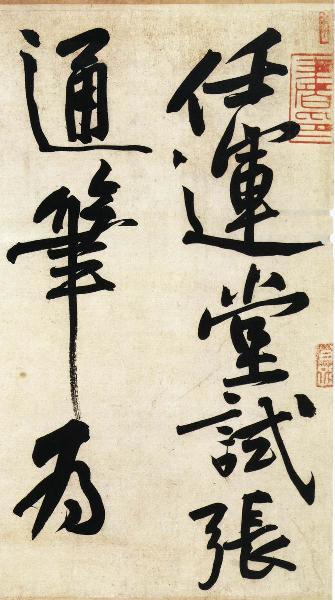 任運堂試張
通筆為